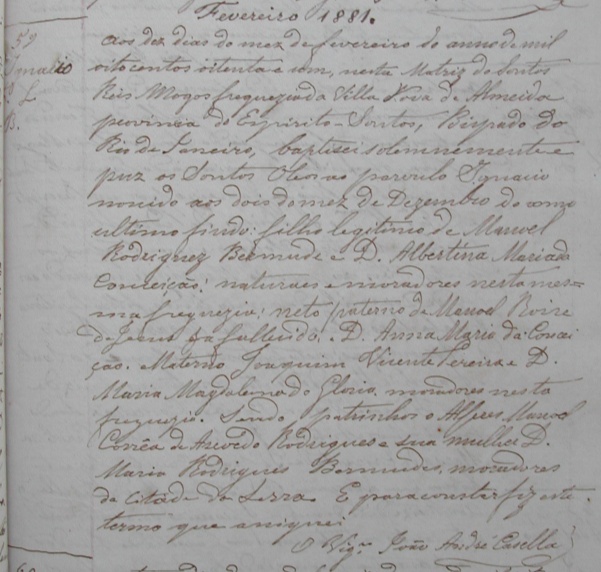 Fevereiro 1881.
59
Ignacio
L
B.
Aos dez dias do mez de fevereiro do anno de mil
oitocentos oitenta e um, nesta Matriz dos Santos
Reis Magos freguezia da Villa Nova de Almeida
provincia do Espirito-Santos, Bispado do
Rio de Janeiro, baptisei solemnemente e
puz os Santos Oleos ao parvulo Ignacio
nascido aos dois do mez de Dezembro do anno
ultimo findo: filho legitimo de Manoel
Rodriguez Bermude e D. Albertina Maria da
Conceição; naturaes e moradores nesta mes=
ma freguezia; neto paterno de Manoel
de Jesus ja fallecido, e D. Anna Maria da Concei
ção. e Materno Joaquim Vicente Pereira e D.
Maria Magdalena da Gloria, moradores nesta
freguezia. Sendo patrinhos o Alferes Manoel
Corrêa de Azevedo Rodrigues e sua mulher D.
Maria Rodrigues Bermudes, moradores
da Cidade da Serra. E para constar fiz este
termo que assignei
O Vigr. João André Casella